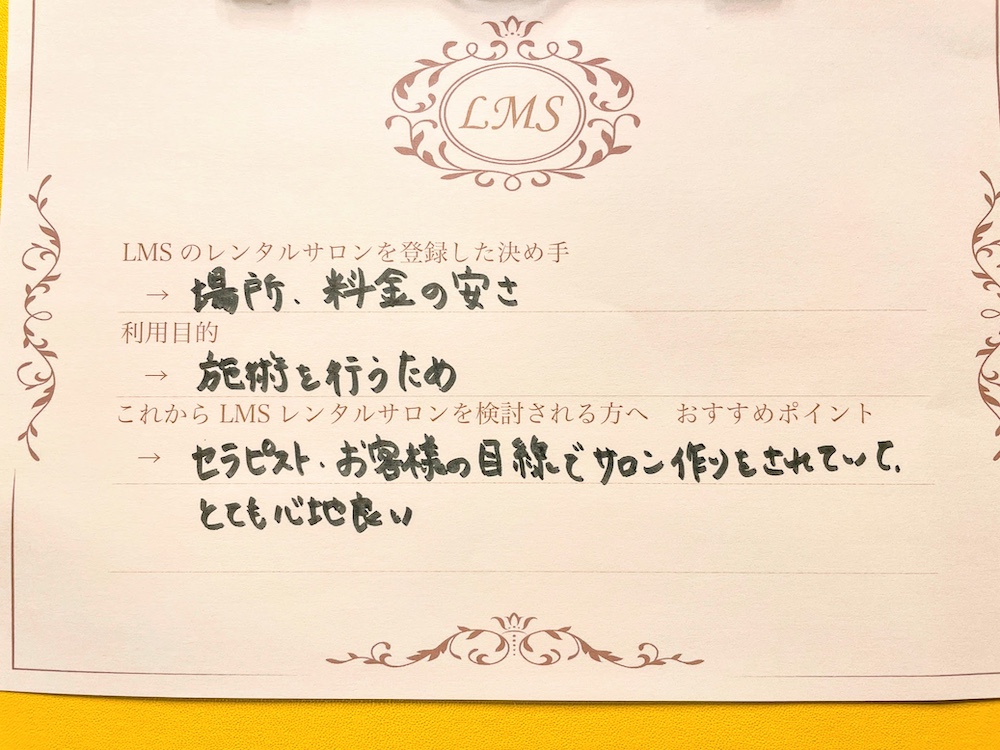 LMS
LMSのレンタルサロンを登録した決め手
→ 場所、料金の安さ
利用目的
→ 施術を行うため
これからLMSレンタルサロンを検討される方へ おすすめポイント
→ セラピスト・お客様の目線でサロン作りをされていて、
とても心地良い